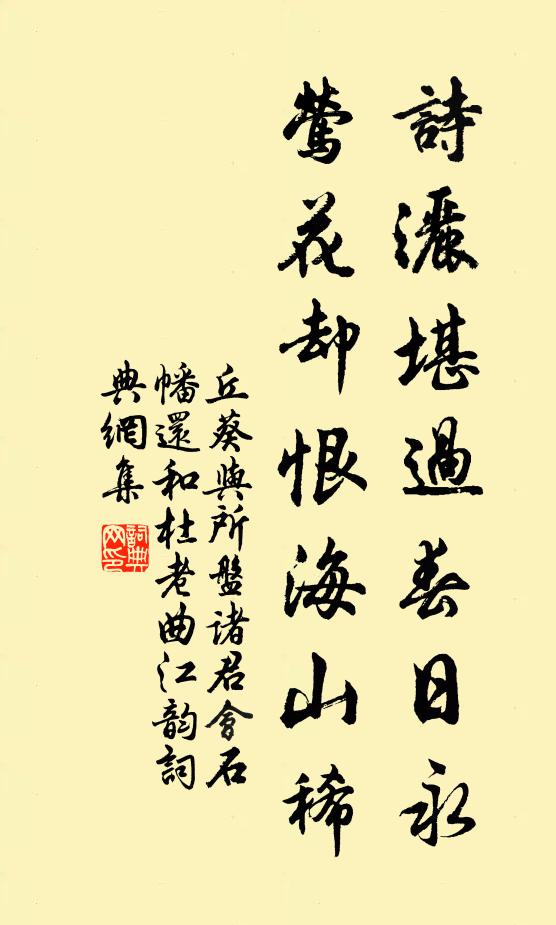 詩灑堪過春日永
鶯花却恨海山稀
丘葵與所盤諸君會石
幡還和杜老曲江韵詞
典網集
詞典
网印